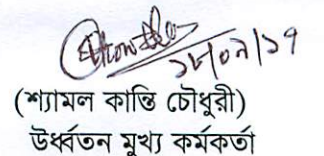 ১৮/০৭/১৭
(শ্যামল কান্তি চৌধুরী)
উর্ধ্বতন মুখ্য কর্মকর্তা